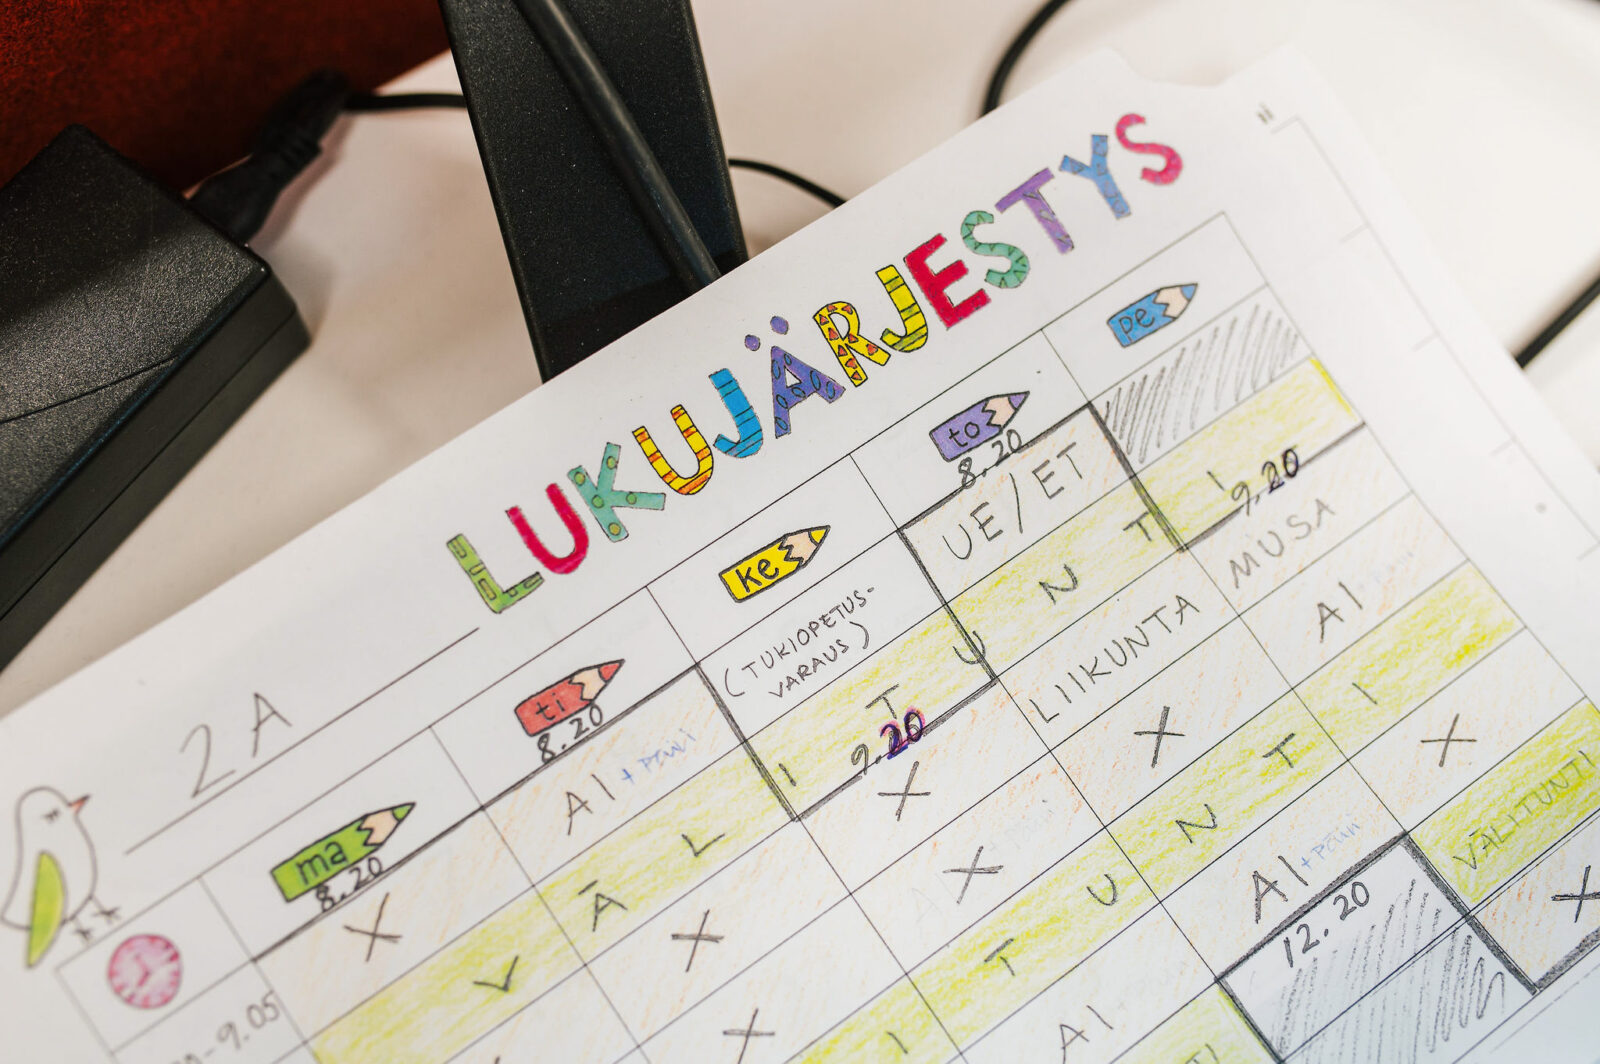 LUKUJÄRJESTYS
2A
ma
8.20
ti
8.20
ke
to
8.20
pe
AI + pauli
(TUKIOPETUS-
VARAUS)
UE/ET
X
VÄLITUNTI
9.20
9.20
X
X
LIIKUNTA
MUSA
X
X
X
AI
VÄLITUNTI
X
AI
AI
X
12.20
VÄLITUNTI
X
-9.05